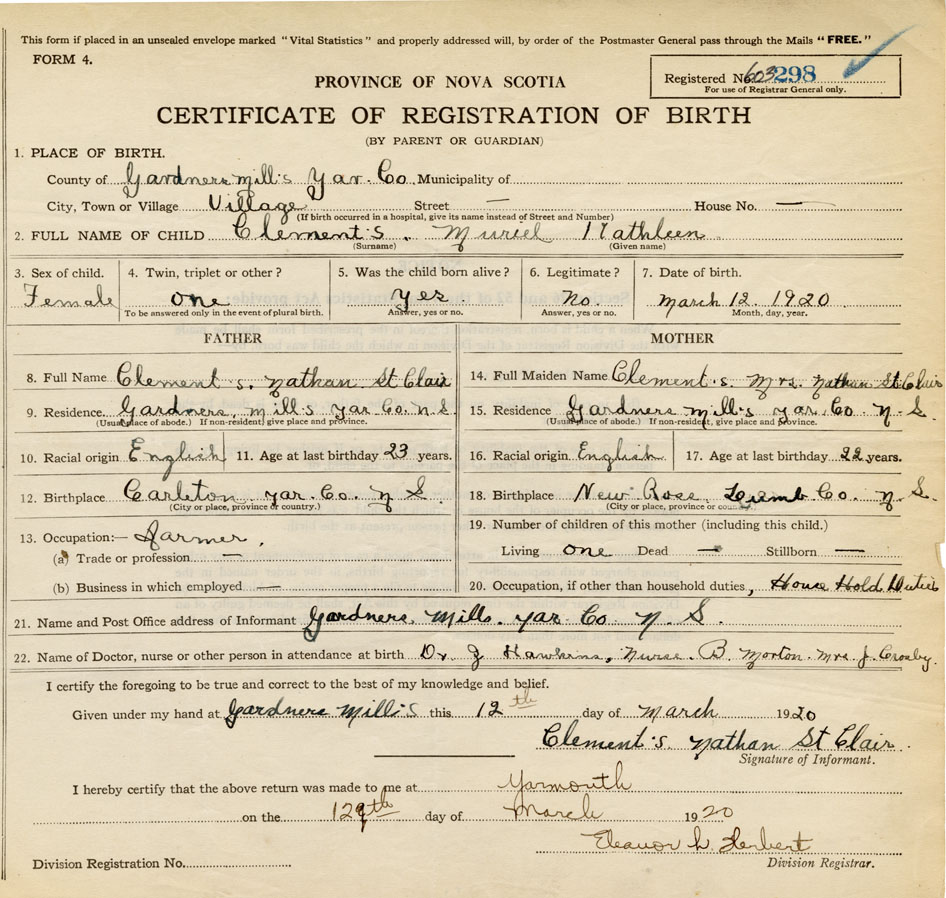 This form if placed in an unsealed envelope marked "Vital Statistics" and properly addressed will, by order of the Postmaster General pass through the Mails "FREE."
FORM 4.
Registered No. 603298
For use of Registrar General only.
PROVINCE OF NOVA SCOTIA
CERTIFICATE OF REGISTRATION OF BIRTH
(BY PARENT OR GUARDIAN)
1. PLACE OF BIRTH.
County of Gardners mill's Yar. Co. Municipality of
City, Town or Village Village Street — House No. —
(If birth occurred in a hospital, give its name instead of Street and Number)
2. FULL NAME OF CHILD Clement's. Muriel Kathleen
(Surname) (Given name)
3. Sex of child. 4. Twin, triplet or other? 5. Was the child born alive? 6. Legitimate? 7. Date of birth.
Female one yes No. March 12. 1920
To be answered only in the event of plural birth. Answer, yes or no. Answer, yes or no. Month, day, year.
FATHER
8. Full Name Clement's. Nathan St Clair
9. Residence Gardners, mill's yar. Co. N.S.
(Usual place of abode.) If non-resident, give place and province.
10. Racial origin English 11. Age at last birthday 23 years.
12. Birthplace Carleton yar. Co. N S
(City or place, province or country.)
13. Occupation:— Farmer.
(a) Trade or profession —
(b) Business in which employed —
MOTHER
14. Full Maiden Name Clement's Mrs. Nathan St. Clair
15. Residence Gardners mill's yar. Co N-S.
(Usual place of abode.) If non-resident, give place and province.
16. Racial origin English. 17. Age at last birthday 22 years.
18. Birthplace New Ross, Co. N.S.
(City or place, province or country.)
19. Number of children of this mother (including this child.)
Living one Dead — Stillborn —
20. Occupation, if other than household duties, House Hold Duties
21. Name and Post Office address of Informant Gardners Mills. yar Co N. S.
22. Name of Doctor, nurse or other person in attendance at birth Dr J Hawkins, Nurse. B. Morton. Mrs J. Crosby.
I certify the foregoing to be true and correct to the best of my knowledge and belief.
Given under my hand at Gardners Mill's this 12th day of March 1920
Clement's. Nathan St Clair.
Signature of Informant.
I hereby certify that the above return was made to me at Yarmouth
on the day of March 1920
Eleanor L. Herbert
Division Registration No. Division Registrar.